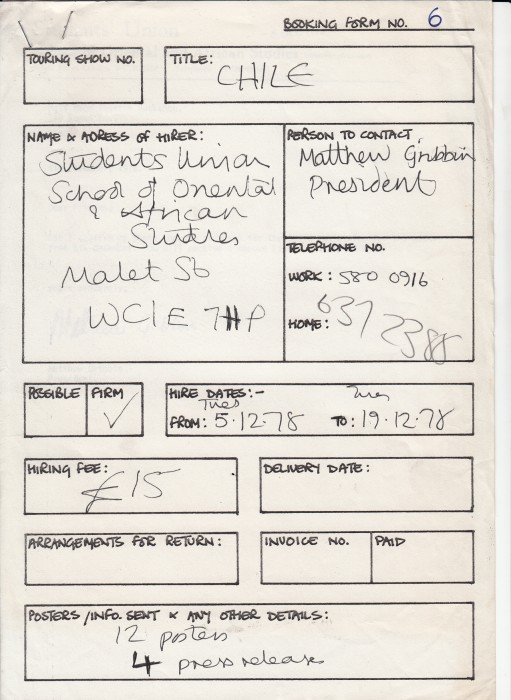 BOOKING FORM NO. 6
TOURING SHOW NO.
TITLE:
CHILE
NAME & ADRESS OF HIRER:
Students Union
School of Oriental
& African
Studies
Malet St
WC1E 7HP
PERSON TO CONTACT
Matthew Gribbin
President
TELEPHONE NO.
WORK: 580 0916
HOME: 637 2388
POSSIBLE
FIRM
✓
HIRE DATES:-
Tues
FROM: 5.12.78
Tues
TO: 19.12.78
HIRING FEE:
£15
DELIVERY DATE:
ARRANGEMENTS FOR RETURN:
INVOICE NO.
PAID
POSTERS/INFO. SENT & ANY OTHER DETAILS:
12 posters
4 press release